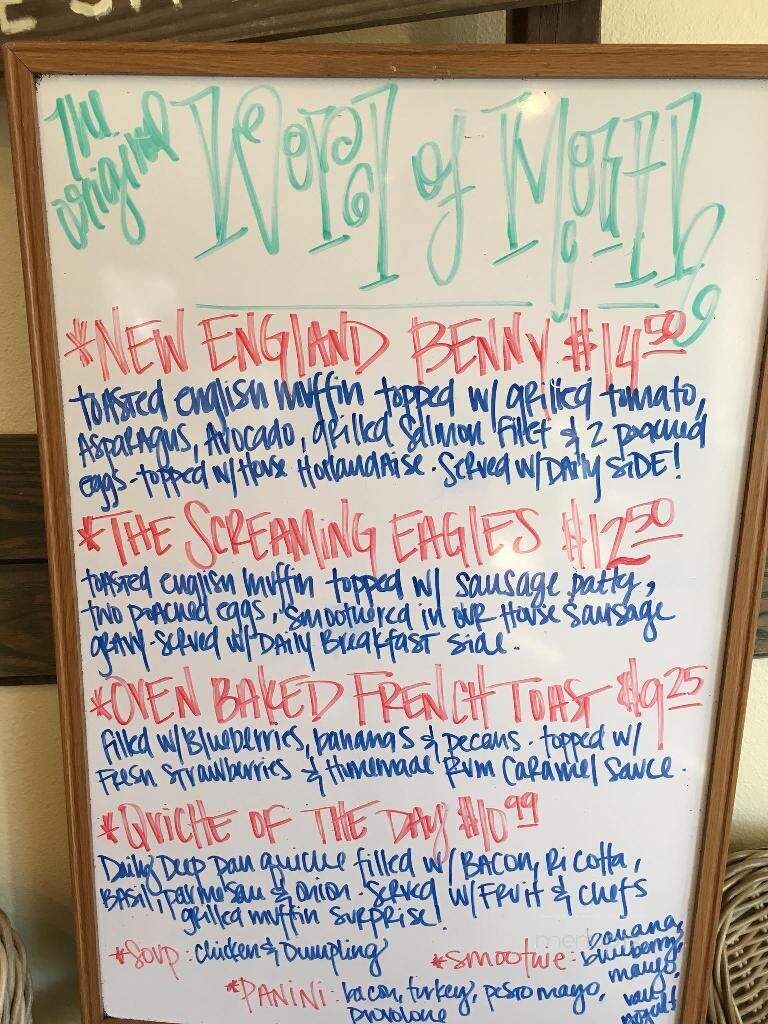 The original Word of Mouth
*New England Benny $14.50
toasted english muffin topped w/ grilled tomato,
Asparagus, Avocado, grilled Salmon fillet & 2 poached
eggs - topped w/ House Hollandaise. Served w/ Daily side!
*The Screaming Eagles $12.50
toasted english muffin topped w/ sausage patty,
two poached eggs, smoothered in our House Sausage
gravy - served w/ Daily Breakfast side.
*Oven Baked French Toast $9.25
filled w/ Blueberries, bananas & pecans. topped w/
Fresh Strawberries & Homemade Rum Caramel Sauce.
*Quiche of the Day $10.99
Daily Deep pan quiche filled w/ Bacon, Ricotta,
Basil, parmesan & onion. Served w/ Fruit & Chefs
grilled muffin surprise!
*Soup: Chicken & Dumpling
*Smoothie: banana,
blueberry,
mango,
yogurt
*Panini: bacon, turkey, pesto mayo,
provolone